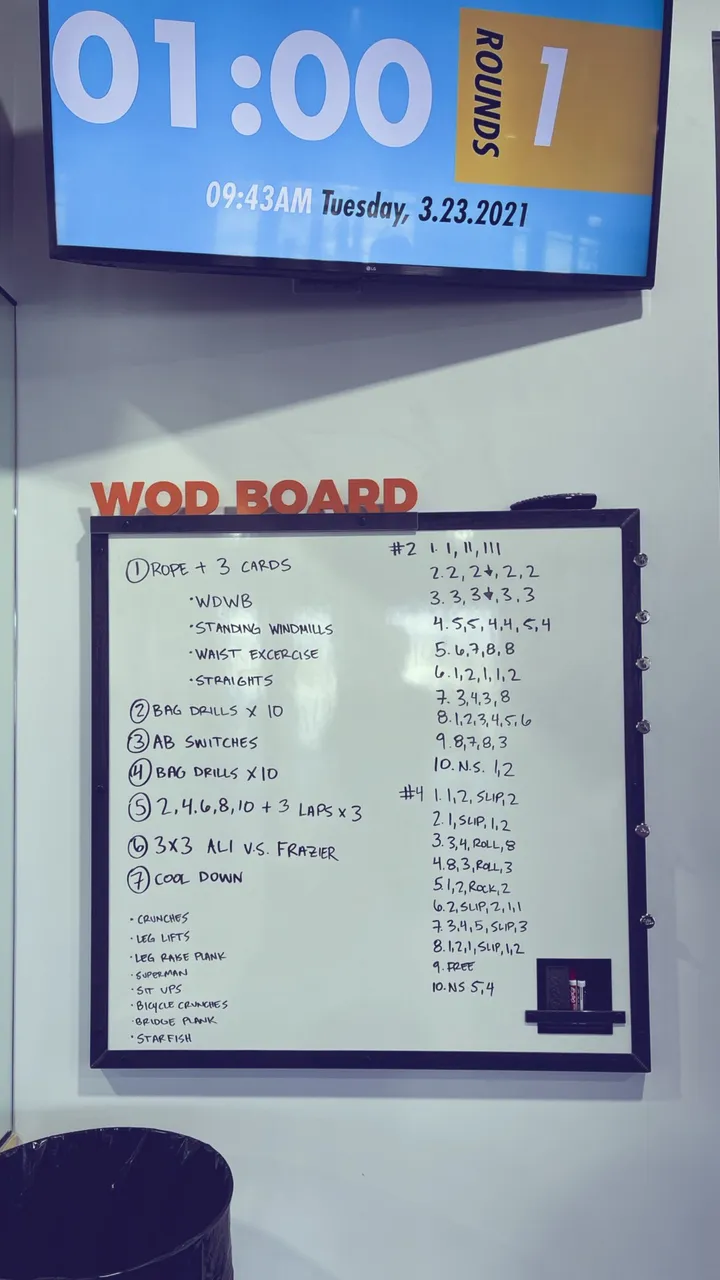 01:00
ROUNDS 1
09:43AM Tuesday, 3.23.2021
LG
WOD BOARD
① ROPE + 3 CARDS
• WDWB
• STANDING WINDMILLS
• WAIST EXCERCISE
• STRAIGHTS
② BAG DRILLS X 10
③ AB SWITCHES
④ BAG DRILLS X10
⑤ 2,4,6,8,10 + 3 LAPS X 3
⑥ 3X3 ALI V.S. FRAZIER
⑦ COOL DOWN
• CRUNCHES
• LEG LIFTS
• LEG RAISE PLANK
• SUPERMAN
• SIT UPS
• BICYCLE CRUNCHES
• BRIDGE PLANK
• STARFISH
#2 1. 1, 11, 111
2. 2, 2↓, 2, 2
3. 3, 3↓, 3, 3
4. 5,5, 4,4, 5,4
5. 6,7,8,8
6. 1,2,1,1,2
7. 3,4,3,8
8. 1,2,3,4,5,6
9. 8,7,8,3
10. N.S. 1,2
#4 1. 1,2, SLIP, 2
2. 1, SLIP, 1, 2
3. 3,4, ROLL, 8
4. 8,3, ROLL, 3
5. 1,2, ROCK, 2
6. 2, SLIP, 2, 1, 1
7. 3,4,5, SLIP, 3
8. 1,2,1, SLIP, 1,2
9. FREE
10. NS 5,4